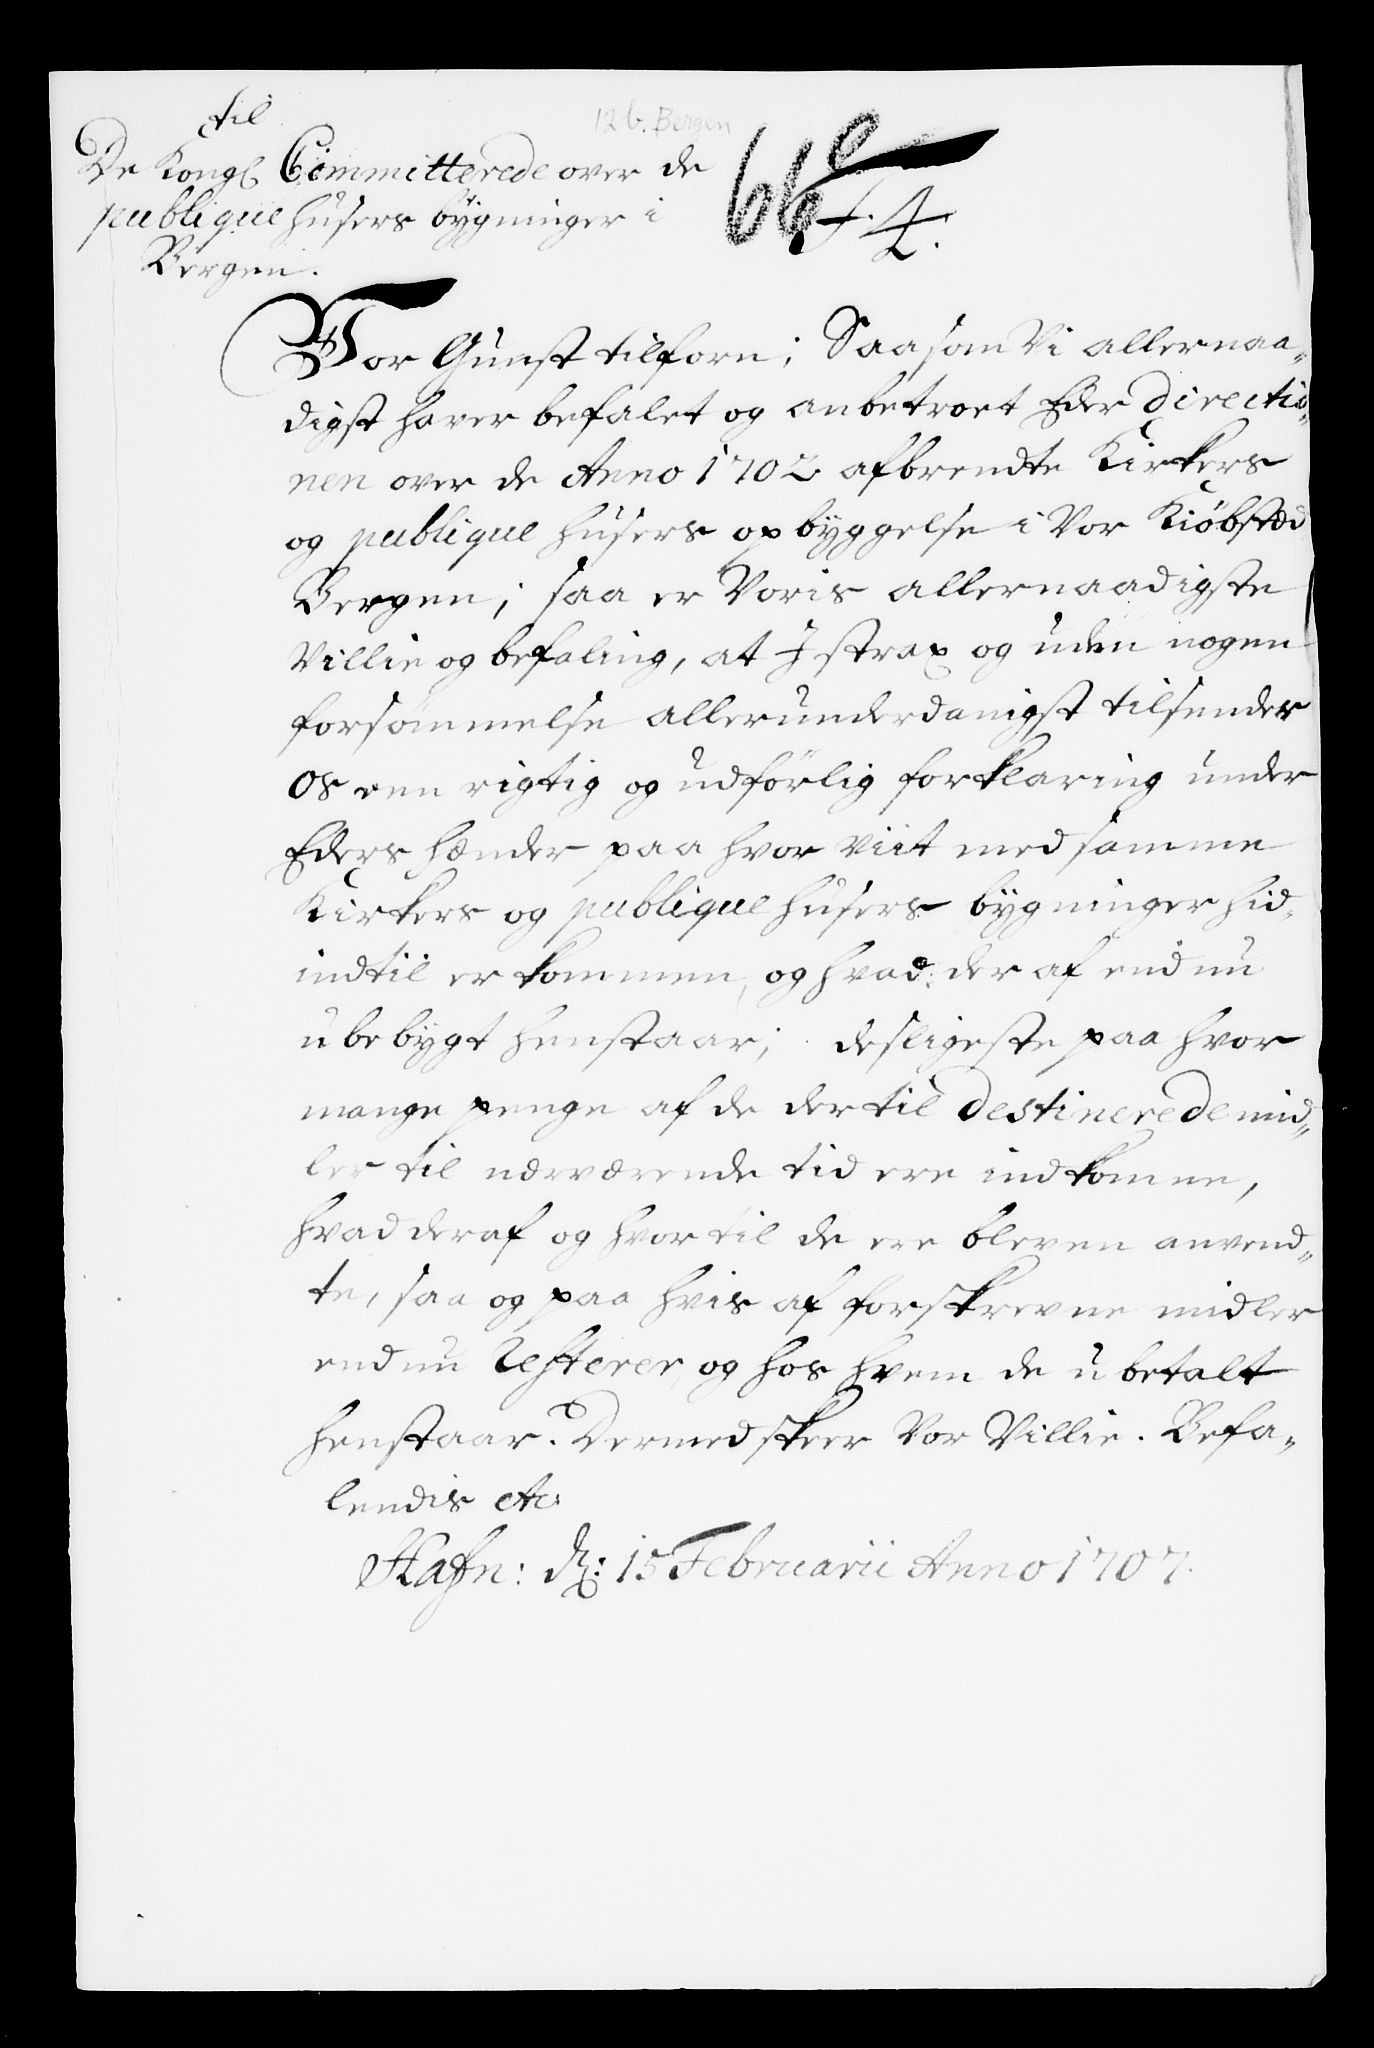 til
12 b. Bergen
De Kongl Committerede over de
publique husers bÿgninger i
Bergen.
F. 4.
Vor Gunst tilforn; Saasom Vi allernaa„
digst hafver befalet og anbetroet Eder Directio„
nen over de Anno 1702 afbrendte Kirkers
og publique husers opbÿggelse i Vor Kiöbsted
Bergen; saa er Voris allernaadigste
Villie og befaling, at I strax og uden nogen
forsömmelse allerunderdanigst tilsender
Os een rigtig og udförlig forklaring under
Eders hænder paa hvor viit med samme
Kirkers og publique husers bÿgninger hid„
indtil er kommen, og hvad der af end nu
ubebÿgt henstaar; desligeste paa hvor
mange penge af de der til destinerede mid„
ler til nærværende tid ere indkomne,
hvad deraf og hvor til de ere blefven anvend„
te, saa og paa hvis af forskrevne midler
end nu Resterer, og hos hvem de ubetalt
henstaar. Dermed skeer Vor Villie. Befa„
lendis etc:
Hafn: d: 15 Februarii Anno 1707.